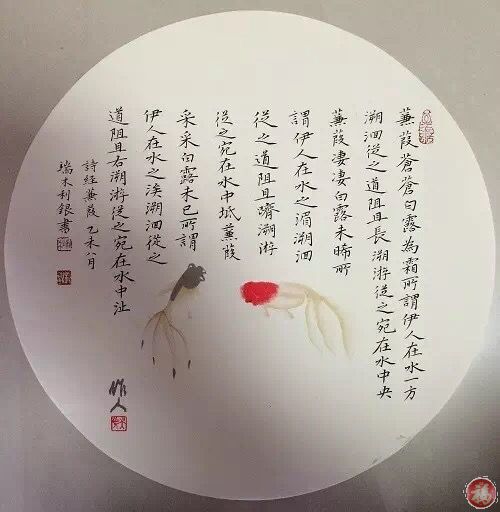 蒹葭蒼蒼白露為霜所謂伊人在水一方
溯洄從之道阻且長溯游從之宛在水中央
蒹葭淒淒白露未晞所
謂伊人在水之湄溯洄
從之道阻且躋溯游
從之宛在水中坻蒹葭
采采白露未已所謂
伊人在水之涘溯洄從之
道阻且右溯游從之宛在水中沚
詩經蒹葭 乙未八月
端木利銀書
作人
福